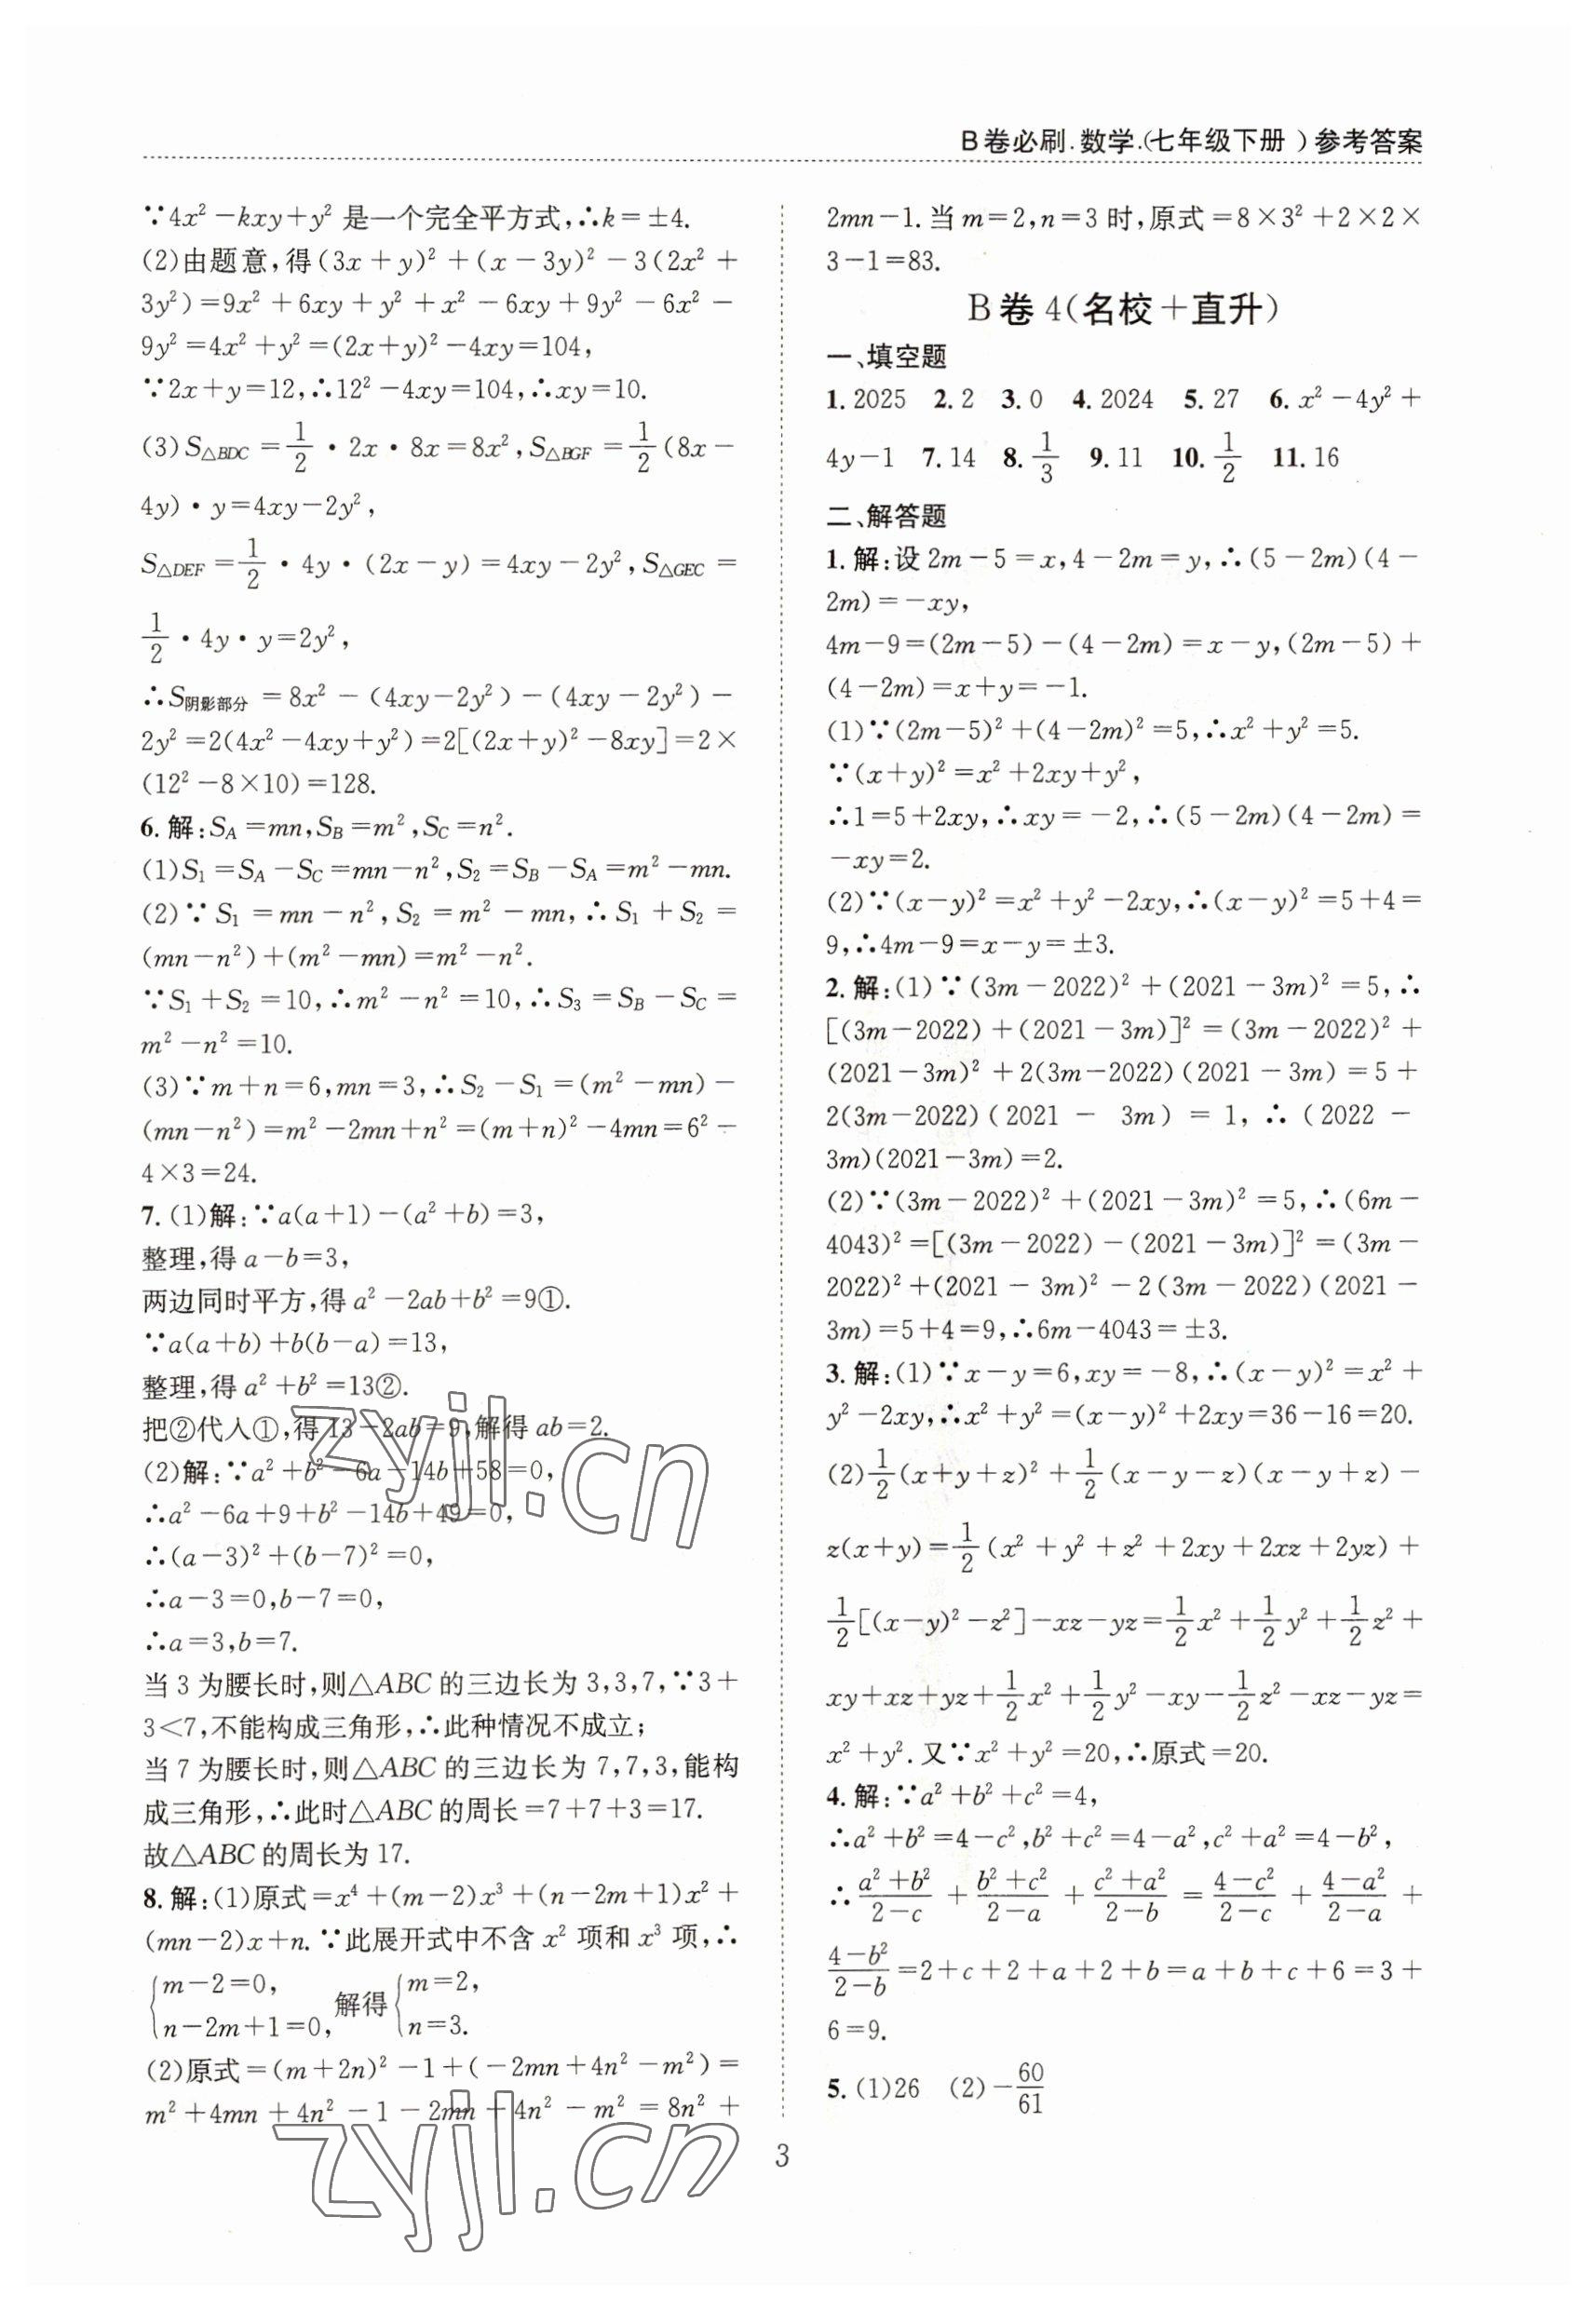 B卷必刷.数学.(七年级下册 )参考答案
∵4x²-kxy+y² 是一个完全平方式,∴k=±4.
(2)由题意,得(3x+y)²+(x-3y)²-3(2x²+
3y²)=9x²+6xy+y²+x²-6xy+9y²-6x²-
9y²=4x²+y²=(2x+y)²-4xy=104,
∵2x+y=12,∴12²-4xy=104,∴xy=10.
(3)S△BDC=1/2·2x·8x=8x²,S△BGF=1/2(8x-
4y)·y=4xy-2y²,
S△DEF=1/2·4y·(2x-y)=4xy-2y²,S△GEC=
1/2·4y·y=2y²,
∴S阴影部分=8x²-(4xy-2y²)-(4xy-2y²)-
2y²=2(4x²-4xy+y²)=2[(2x+y)²-8xy]=2×
(12²-8×10)=128.
6.解:S_A=mn,S_B=m²,S_C=n².
(1)S₁=S_A-S_C=mn-n²,S₂=S_B-S_A=m²-mn.
(2)∵S₁=mn-n²,S₂=m²-mn,∴S₁+S₂=
(mn-n²)+(m²-mn)=m²-n².
∵S₁+S₂=10,∴m²-n²=10,∴S₃=S_B-S_C=
m²-n²=10.
(3)∵m+n=6,mn=3,∴S₂-S₁=(m²-mn)-
(mn-n²)=m²-2mn+n²=(m+n)²-4mn=6²-
4×3=24.
7.(1)解:∵a(a+1)-(a²+b)=3,
整理,得 a-b=3,
两边同时平方,得 a²-2ab+b²=9①.
∵a(a+b)+b(b-a)=13,
整理,得 a²+b²=13②.
把②代入①,得 13-2ab=9,解得 ab=2.
(2)解:∵a²+b²-6a-14b+58=0,
∴a²-6a+9+b²-14b+49=0,
∴(a-3)²+(b-7)²=0,
∴a-3=0,b-7=0,
∴a=3,b=7.
当 3 为腰长时,则△ABC 的三边长为 3,3,7,∵3+
3<7,不能构成三角形,∴此种情况不成立;
当 7 为腰长时,则△ABC 的三边长为 7,7,3,能构
成三角形,∴此时△ABC 的周长=7+7+3=17.
故△ABC 的周长为 17.
8.解:(1)原式=x⁴+(m-2)x³+(n-2m+1)x²+
(mn-2)x+n.∵此展开式中不含 x² 项和 x³ 项,∴
{m-2=0, n-2m+1=0, 解得 {m=2, n=3.
(2)原式=(m+2n)²-1+(-2mn+4n²-m²)=
m²+4mn+4n²-1-2mn+4n²-m²=8n²+
2mn-1.当 m=2,n=3 时,原式=8×3²+2×2×
3-1=83.
B卷 4(名校+直升)
一、填空题
1.2025 2.2 3.0 4.2024 5.27 6.x²-4y²+
4y-1 7.14 8.1/3 9.11 10.1/2 11.16
二、解答题
1.解:设 2m-5=x,4-2m=y,∴(5-2m)(4-
2m)=-xy,
4m-9=(2m-5)-(4-2m)=x-y,(2m-5)+
(4-2m)=x+y=-1.
(1)∵(2m-5)²+(4-2m)²=5,∴x²+y²=5.
∵(x+y)²=x²+2xy+y²,
∴1=5+2xy,∴xy=-2,∴(5-2m)(4-2m)=
-xy=2.
(2)∵(x-y)²=x²+y²-2xy,∴(x-y)²=5+4=
9,∴4m-9=x-y=±3.
2.解:(1)∵(3m-2022)²+(2021-3m)²=5,∴
[(3m-2022)+(2021-3m)]²=(3m-2022)²+
(2021-3m)²+2(3m-2022)(2021-3m)=5+
2(3m-2022)(2021-3m)=1,∴(2022-
3m)(2021-3m)=2.
(2)∵(3m-2022)²+(2021-3m)²=5,∴(6m-
4043)²=[(3m-2022)-(2021-3m)]²=(3m-
2022)²+(2021-3m)²-2(3m-2022)(2021-
3m)=5+4=9,∴6m-4043=±3.
3.解:(1)∵x-y=6,xy=-8,∴(x-y)²=x²+
y²-2xy,∴x²+y²=(x-y)²+2xy=36-16=20.
(2)1/2(x+y+z)²+1/2(x-y-z)(x-y+z)-
z(x+y)=1/2(x²+y²+z²+2xy+2xz+2yz)+
1/2[(x-y)²-z²]-xz-yz=1/2x²+1/2y²+1/2z²+
xy+xz+yz+1/2x²+1/2y²-xy-1/2z²-xz-yz=
x²+y².又∵x²+y²=20,∴原式=20.
4.解:∵a²+b²+c²=4,
∴a²+b²=4-c²,b²+c²=4-a²,c²+a²=4-b²,
∴(a²+b²)/(2-c)+(b²+c²)/(2-a)+(c²+a²)/(2-b)=(4-c²)/(2-c)+(4-a²)/(2-a)+
(4-b²)/(2-b)=2+c+2+a+2+b=a+b+c+6=3+
6=9.
5.(1)26 (2)-60/61
3
zyjl.cn
zyjl.cn